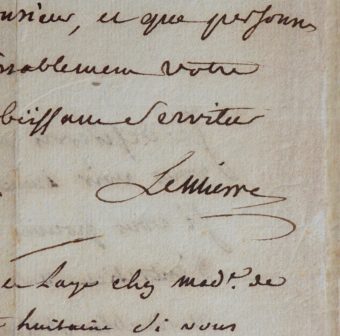 nsieur, et que personne
rablement votre
béissant Serviteur
Lemierre
e Laye chez mad.e de
huitaine Si vous